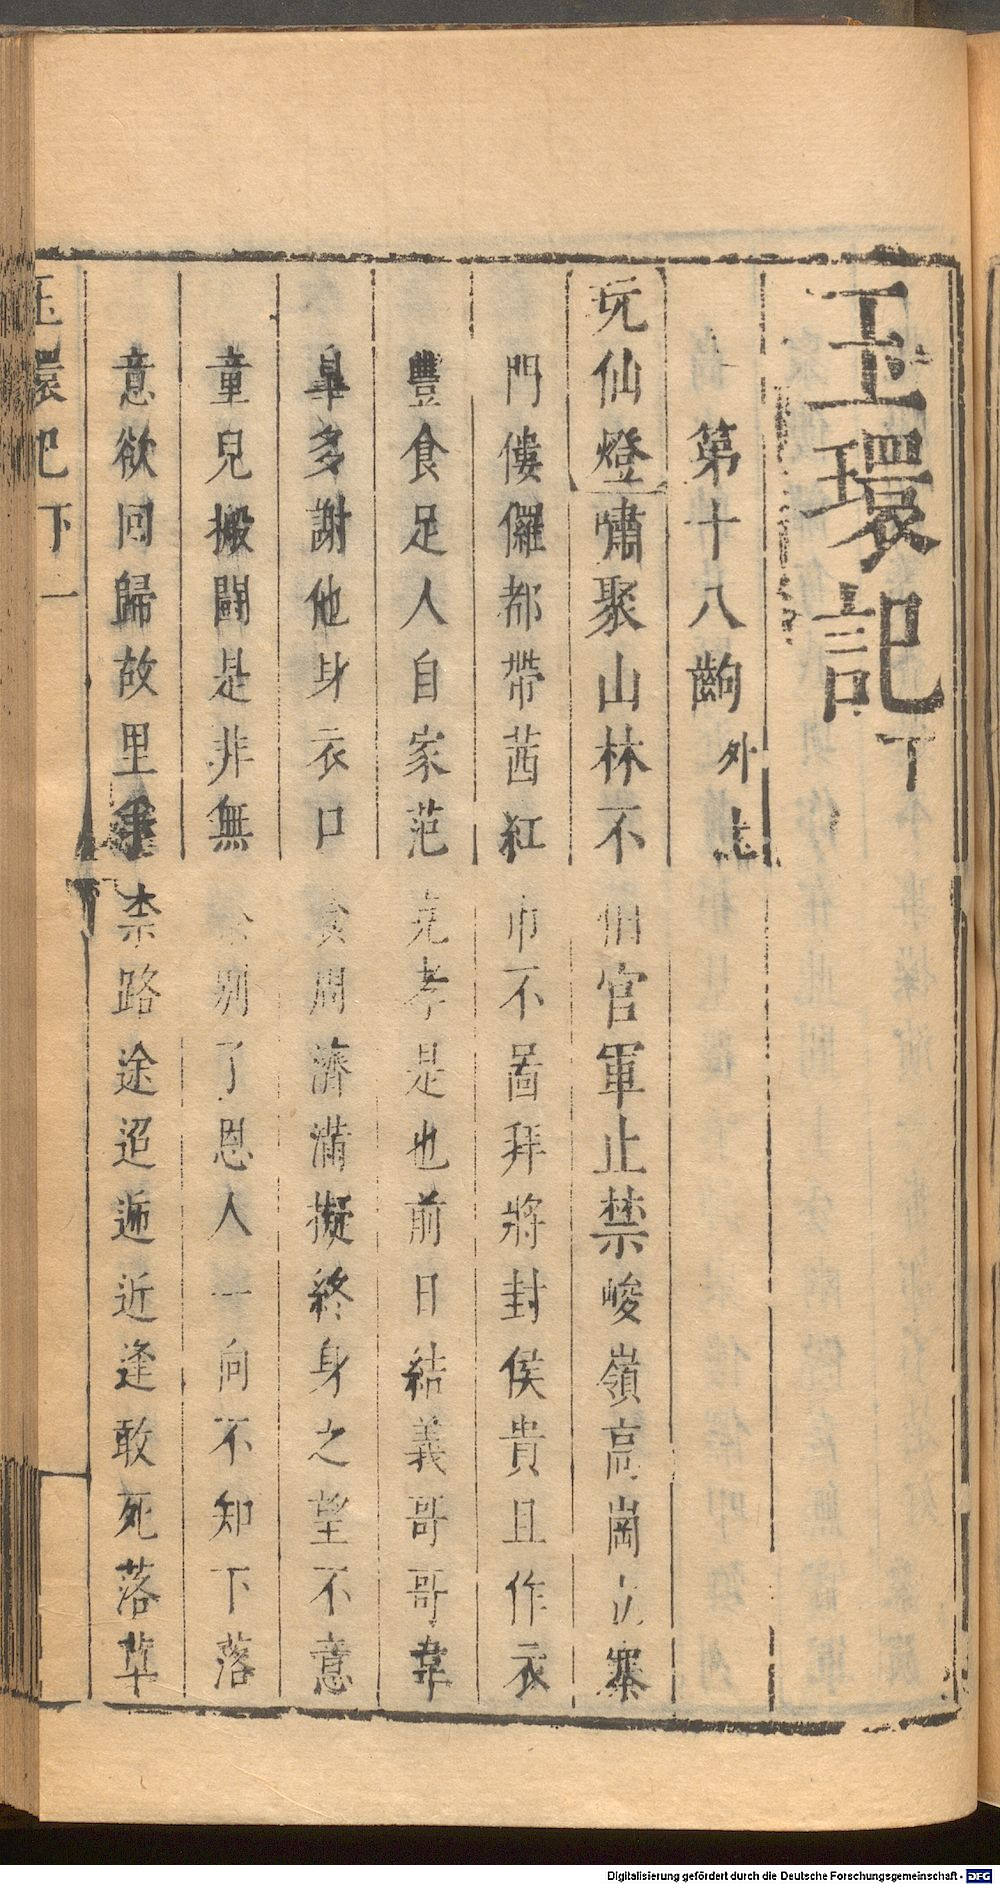 玉環記下
第十八齣外上
玩仙燈嘯聚山林不怕官軍止禁峻嶺高崗立寨
門僂儸都帶茜紅巾不啚拜將封侯貴且作衣
豐食足人自家范克孝是也前日結義哥哥韋
皐多謝他身衣口食周濟滿擬終身之望不意
童兒搬鬪是非無 别了恩人一向不知下落
意欲回歸故里爭柰路途迢遞近逢敢死落草
玉環記下 一
Digitalisierung gefördert durch die Deutsche Forschungsgemeinschaft - DFG